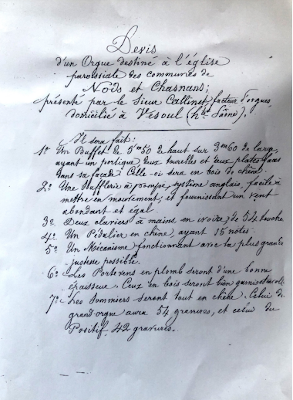 Devis
d'un Orgue destiné à l'église
paroissiale des communes de
Nods et Chasnans;
présenté par le Sieur Callinet, facteur d'orgues
domicilié à Vesoul (hte Saône).
Il sera fait:
1° Un Buffet de 5m50 de haut sur 3m60 de large,
ayant un portique, deux tourelles et deux plates-faces
dans sa façade. Celle-ci sera en bois de
2° Une Soufflerie à pompe, système anglais, facile à
mettre en mouvement, et fournissant un vent
abondant et égal.
3° Deux claviers à mains en ivoire, de 54 touches.
4° Un Pédalier en chêne, ayant 15 notes.
5° Un Mécanisme fonctionnant avec la plus grande
justesse possible.
6° Les Portevens en plomb seront d'une bonne
épaisseur. Ceux en bois seront bien garnis et
7° Les Sommiers seront tout en chêne. Celui du
grand orgue aura 54 gravures, et celui du
Positif, 42 gravures.